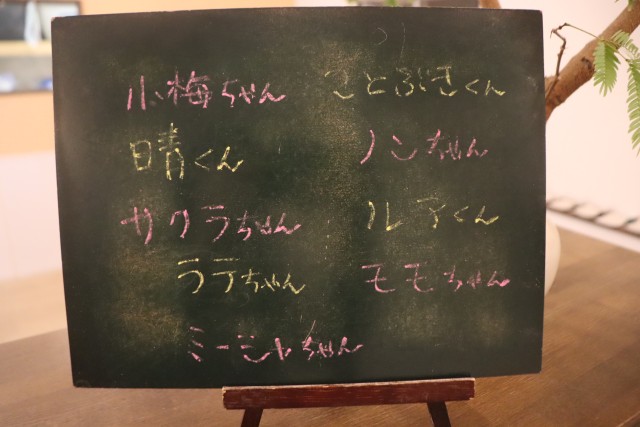 小梅ちゃん
ことぶきくん
晴くん
ノンちゃん
サクラちゃん
ルアくん
ラテちゃん
モモちゃん
ミーシャちゃん